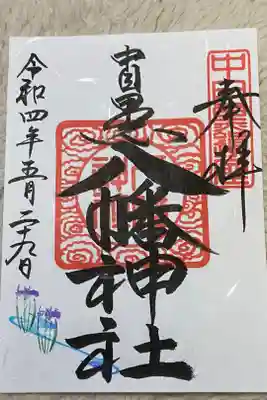 奉拝
中目黒八幡神社
令和四年五月二十九日